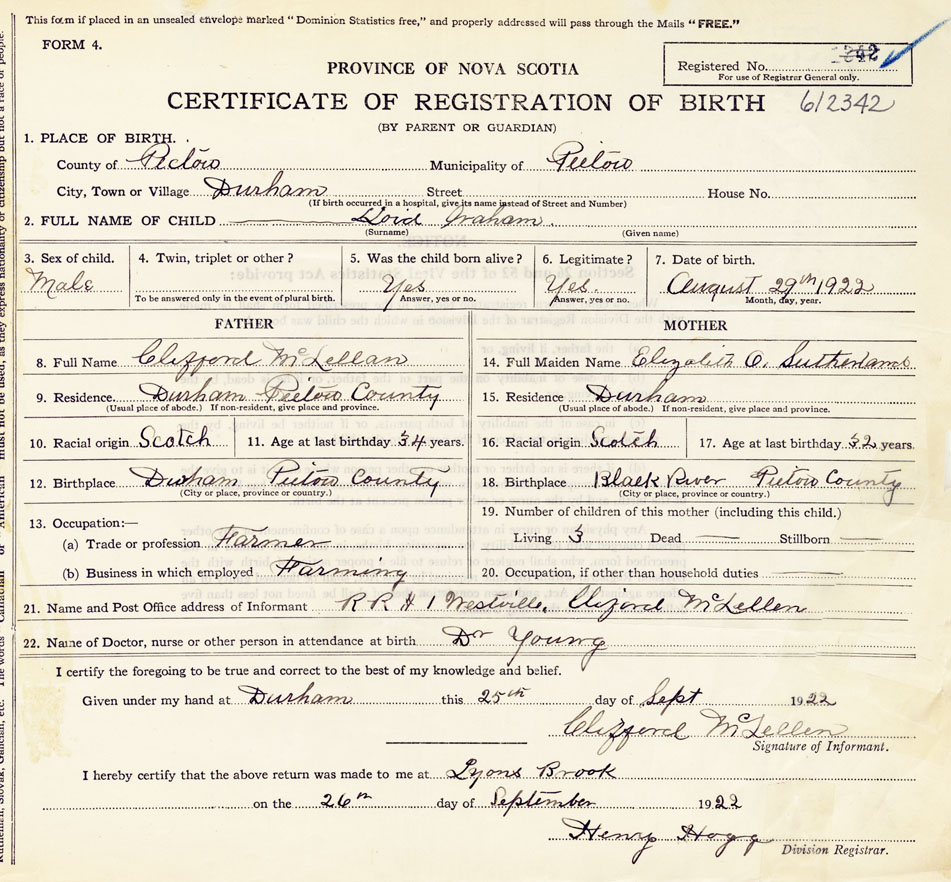 This form if placed in an unsealed envelope marked "Dominion Statistics free," and properly addressed will pass through the Mails "FREE."
FORM 4.
Registered No.
For use of Registrar General only.
PROVINCE OF NOVA SCOTIA
CERTIFICATE OF REGISTRATION OF BIRTH 612342
(BY PARENT OR GUARDIAN)
1. PLACE OF BIRTH.
County of Pictou Municipality of Pictou
City, Town or Village Durham Street House No.
(If birth occurred in a hospital, give its name instead of Street and Number)
2. FULL NAME OF CHILD Loid Graham.
(Surname) (Given name)
3. Sex of child. 4. Twin, triplet or other? 5. Was the child born alive? 6. Legitimate? 7. Date of birth.
Male Yes Yes. August 29th 1922
To be answered only in the event of plural birth. Answer, yes or no. Answer, yes or no. Month, day, year.
FATHER MOTHER
8. Full Name Clifford McLellan 14. Full Maiden Name Elizabeth O. Sutherland
9. Residence. Durham Pictou County 15. Residence Durham
(Usual place of abode.) If non-resident, give place and province. (Usual place of abode.) If non-resident, give place and province.
10. Racial origin Scotch 11. Age at last birthday 34 years. 16. Racial origin Scotch 17. Age at last birthday 32 years.
12. Birthplace Durham Pictou County 18. Birthplace Black River Pictou County
(City or place, province or country.) (City or place, province or country.)
19. Number of children of this mother (including this child.)
13. Occupation:—
(a) Trade or profession Farmer Living 3 Dead — Stillborn —
(b) Business in which employed Farming 20. Occupation, if other than household duties —
21. Name and Post Office address of Informant R R # 1 Westville, Clifford McLellen
22. Name of Doctor, nurse or other person in attendance at birth Dr Young
I certify the foregoing to be true and correct to the best of my knowledge and belief.
Given under my hand at Durham this 25th day of Sept 1922
Clifford McLellen
Signature of Informant.
I hereby certify that the above return was made to me at Lyons Brook
on the 26th day of September 1922
Henry Hogg
Division Registrar.